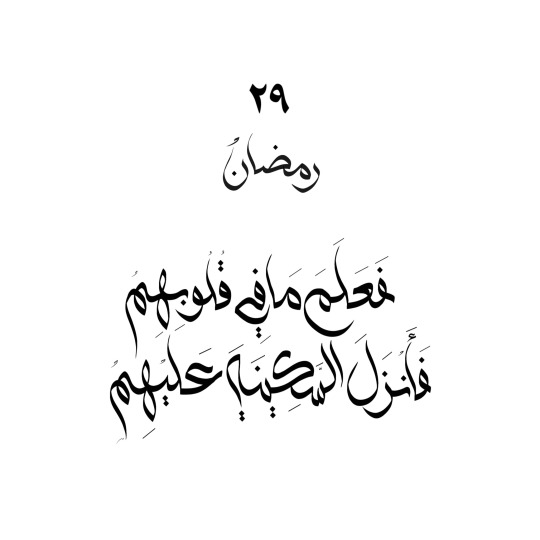 ٢٩
رمضان
فَعَلِمَ مَا فِي قُلُوبِهِمْ
فَأَنْزَلَ السَّكِينَةَ عَلَيْهِمْ